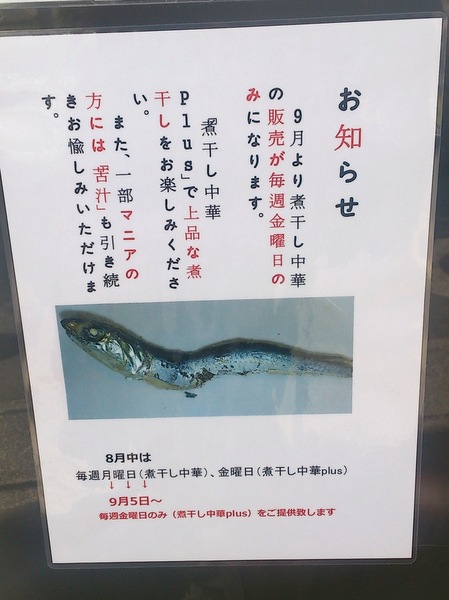 お知らせ
９月より煮干し中華
の販売が毎週金曜日の
みになります。
「煮干し中華
Plus」で上品な煮
干しをお楽しみくださ
い。
また、一部マニアの
方には「苦汁」も引き続
きお愉しみいただけま
す。
8月中は
毎週月曜日（煮干し中華）、金曜日（煮干し中華plus）
↓ ↓ ↓
9月5日～
毎週金曜日のみ（煮干し中華plus）をご提供致します